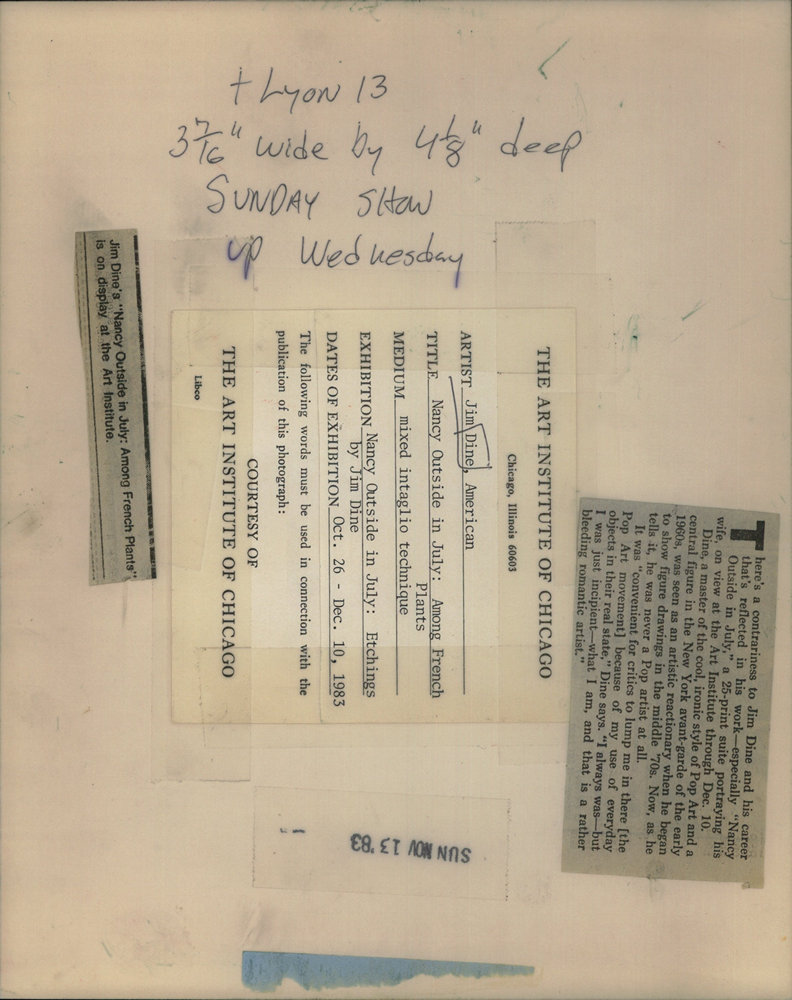 + Lyon 13
3 7/16" wide by 4 1/8" deep
SUNDAY SHOW
up Wednesday
Jim Dine's "Nancy Outside in July: Among French Plants"
is on display at the Art Institute.
THE ART INSTITUTE OF CHICAGO
Chicago, Illinois 60603
ARTIST Jim Dine, American
TITLE Nancy Outside in July: Among French
Plants
MEDIUM mixed intaglio technique
EXHIBITION Nancy Outside in July: Etchings
by Jim Dine
DATES OF EXHIBITION Oct. 26 - Dec. 10, 1983
The following words must be used in connection with the
publication of this photograph:
COURTESY OF
THE ART INSTITUTE OF CHICAGO
Libco
There's a contrariness to Jim Dine and his career
that's reflected in his work—especially "Nancy
Outside in July," a 25-print suite portraying his
wife, on view at the Art Institute through Dec. 10.
Dine, a master of the cool, ironic style of Pop Art and a
central figure in the New York avant-garde of the early
1960s, was seen as an artistic reactionary when he began
to show figure drawings in the middle '70s. Now, as he
tells it, he was never a Pop artist at all.
It was "convenient for critics to lump me in there [the
Pop Art movement] because of my use of everyday
objects in their real state," Dine says. "I always was—but
I was just incipient—what I am, and that is a rather
bleeding romantic artist."
SUN NOV 13 '83